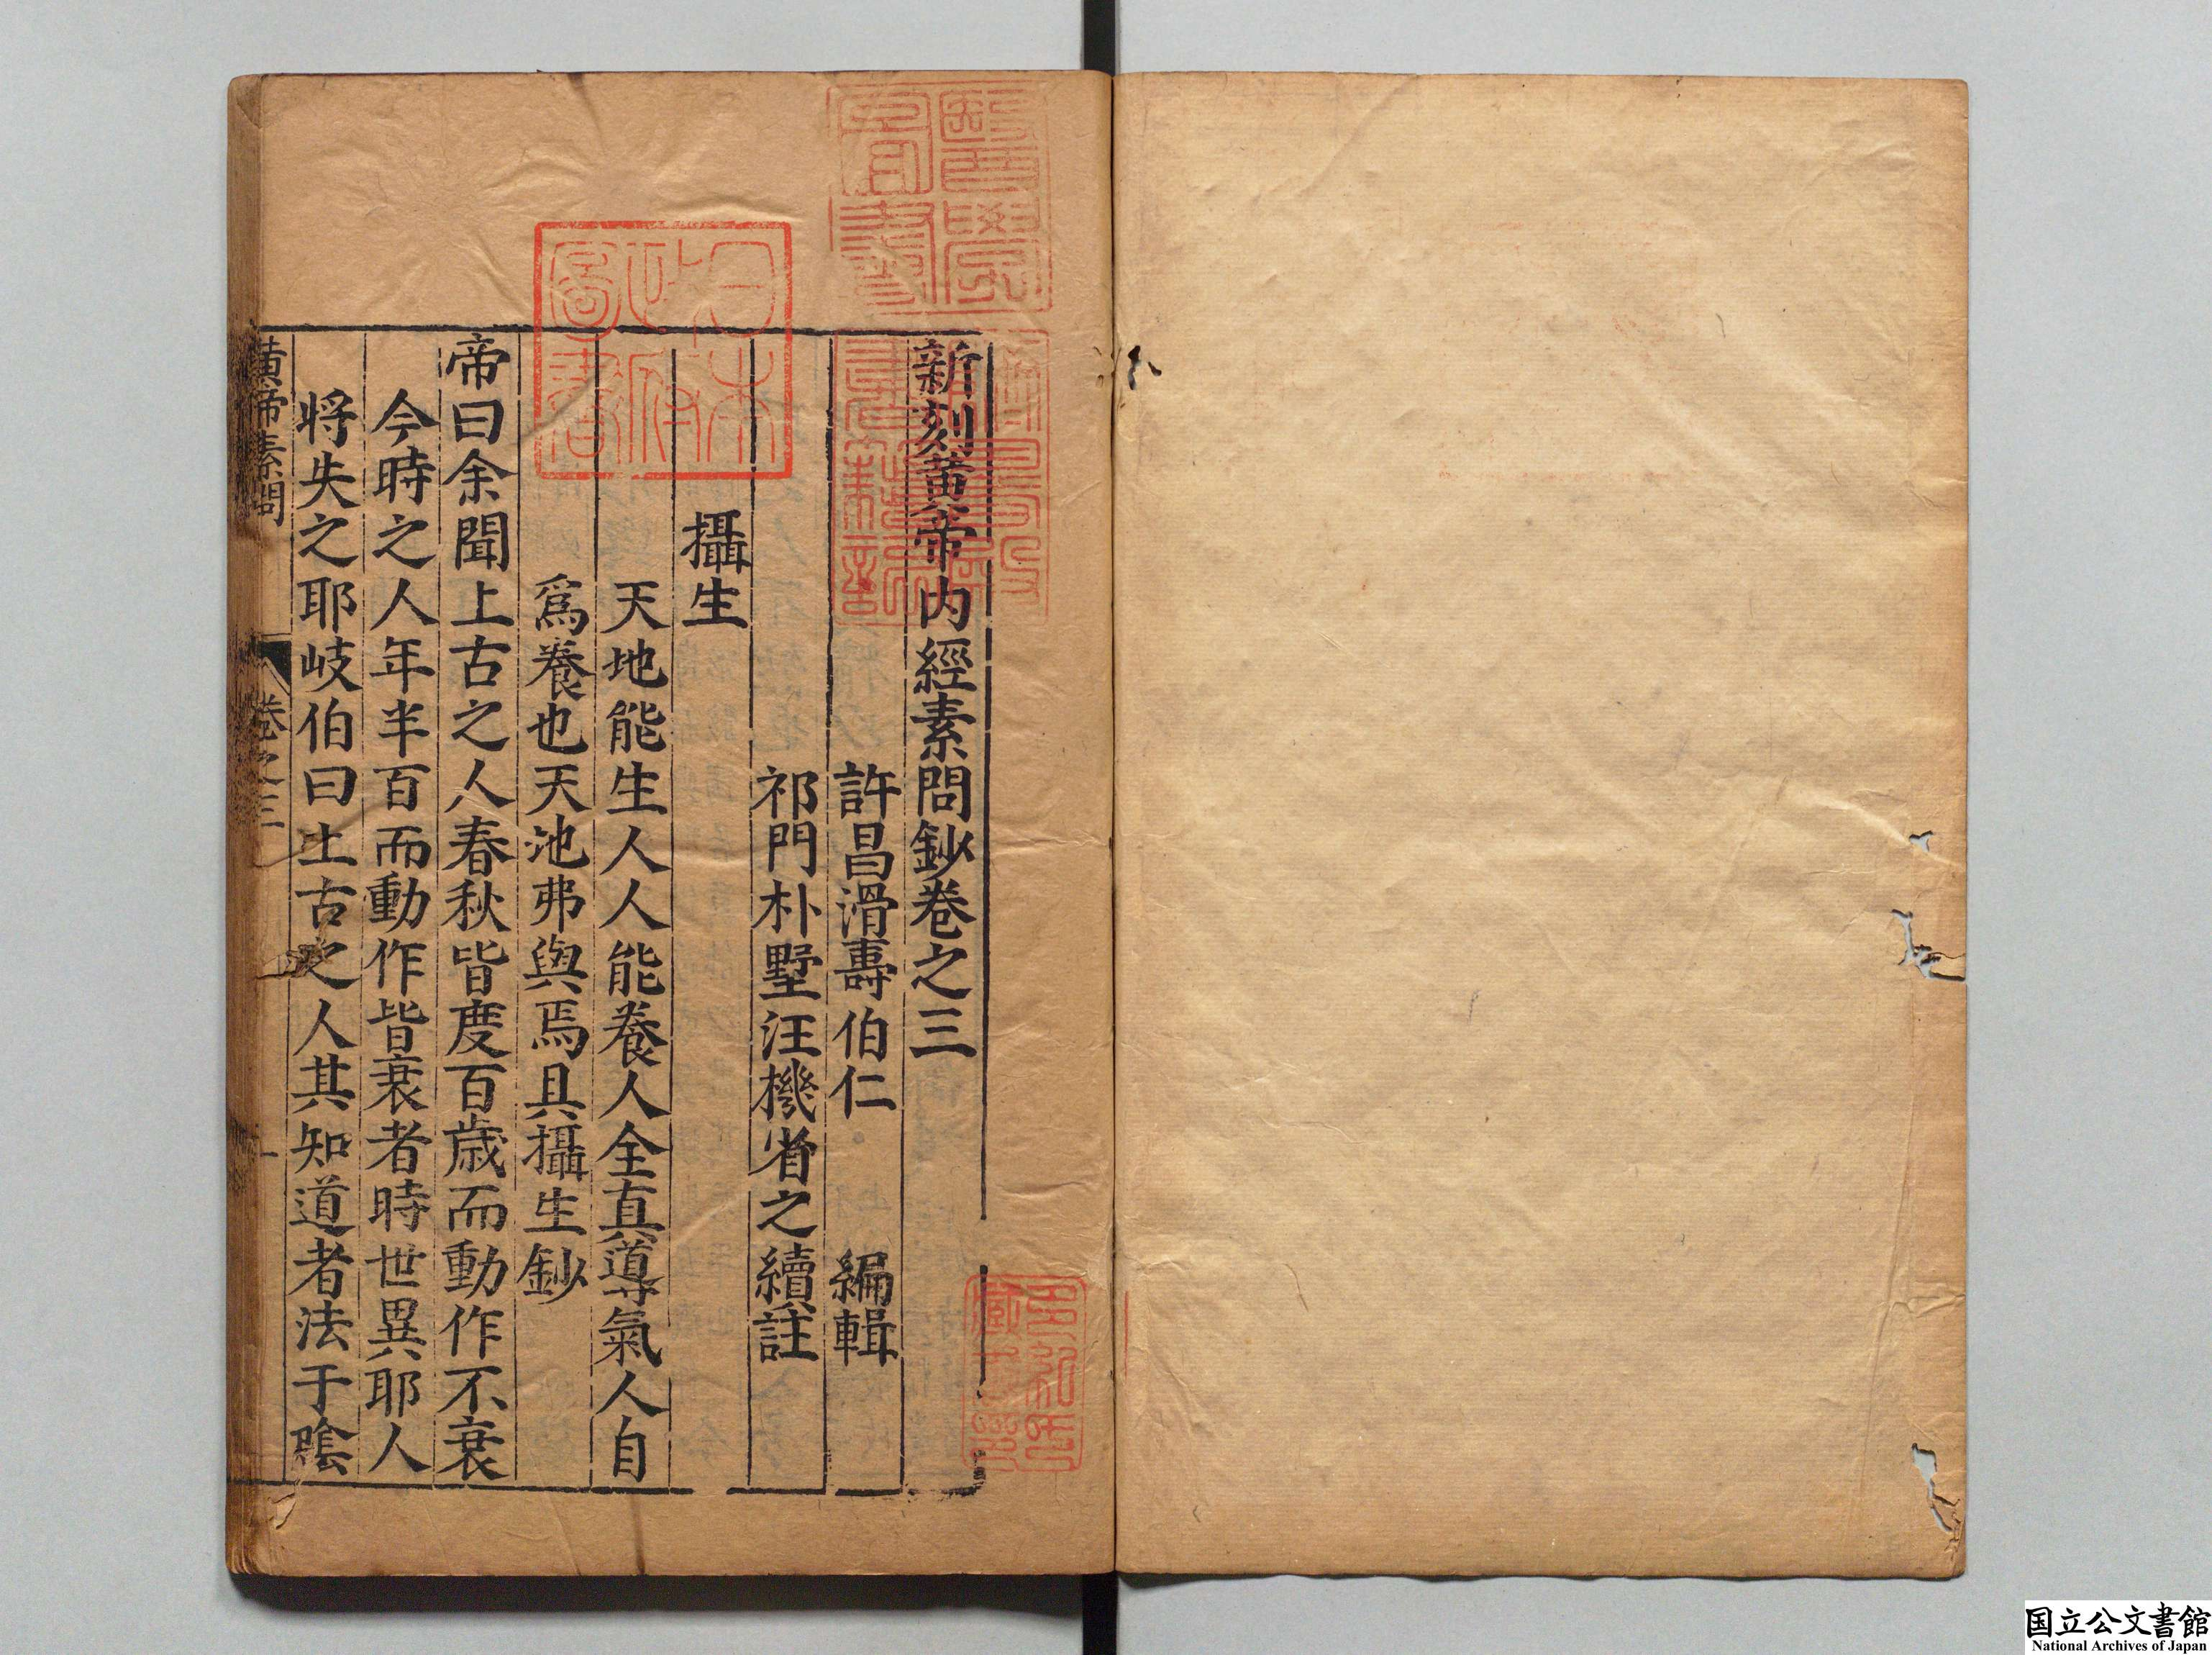 新刻黄帝内經素問鈔卷之三
許昌滑壽伯仁　編輯
祁門朴墅汪機省之續註
攝生
天地能生人人能養人全真導氣人自
爲養也天池弗與焉具攝生鈔
帝曰余聞上古之人春秋皆度百歲而動作不衰
今時之人年半百而動作皆衰者時世異耶人
將失之耶岐伯曰上古之人其知道者法于陰
黄帝素問　卷之三　一
日本政府圖書
醫學圖書
多紀氏藏書印
国立公文書館
National Archives of Japan